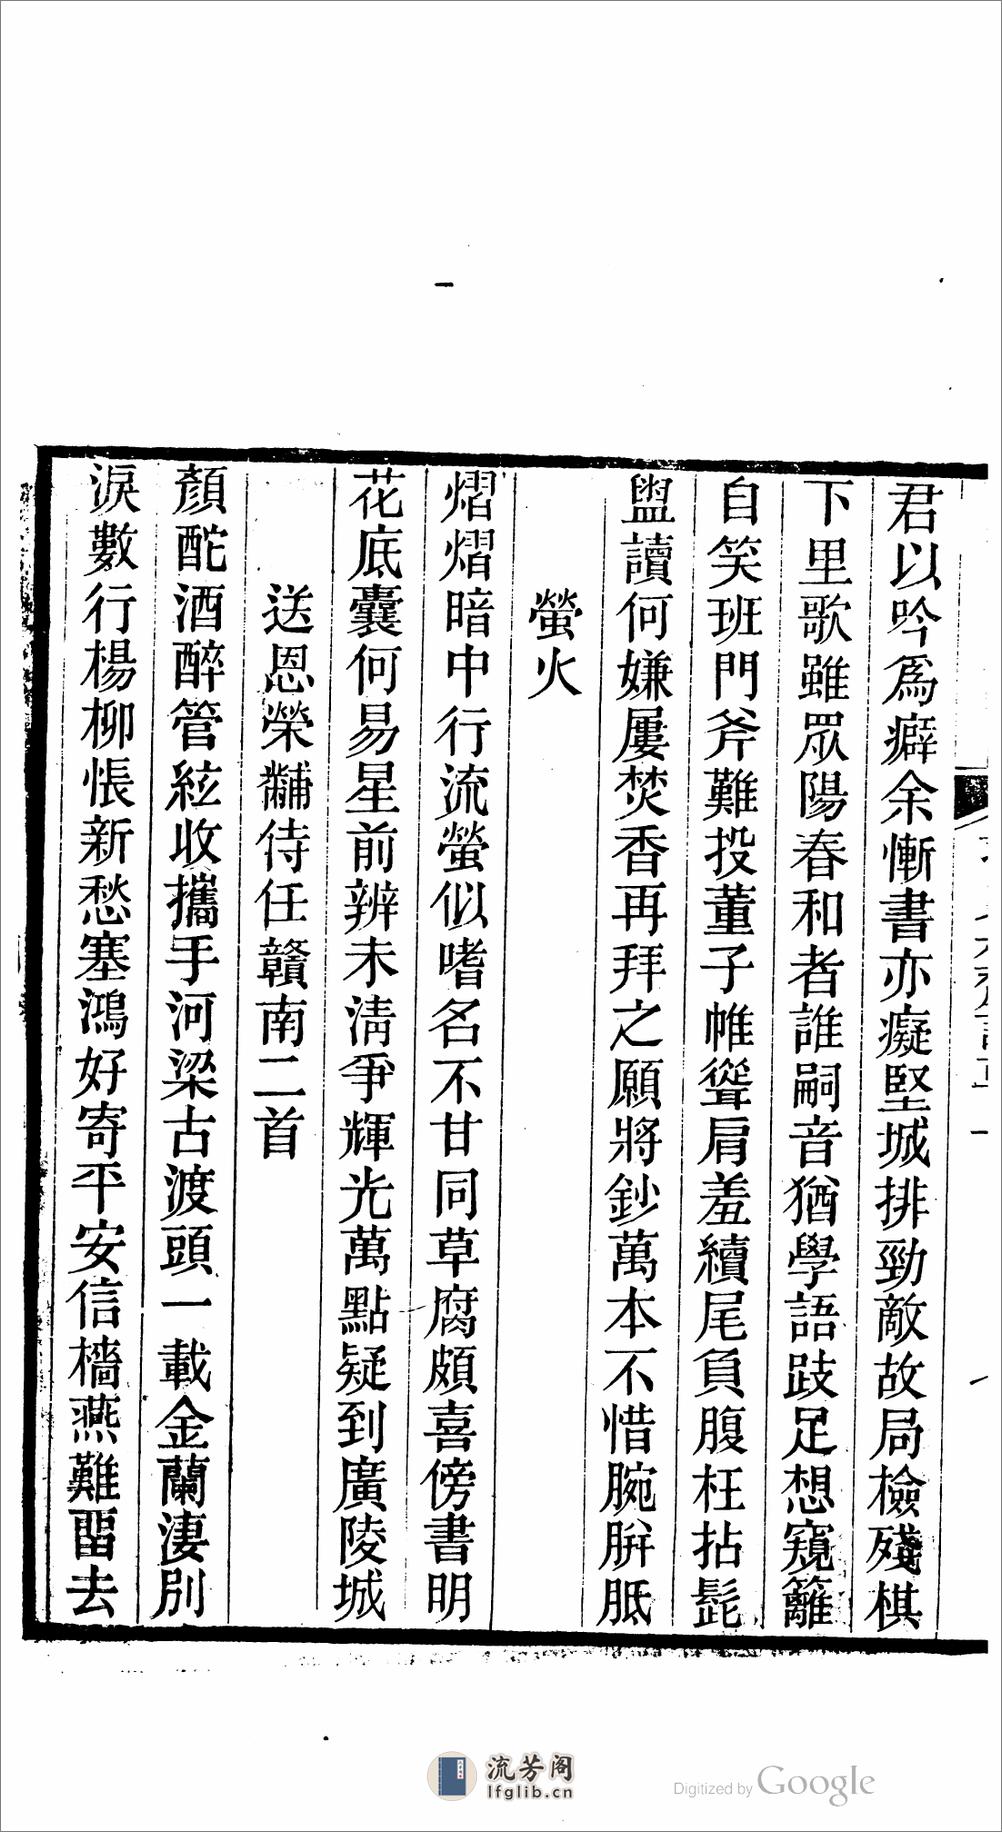 君以吟爲癖余慚書亦癡堅城排勁敵故局檢殘棋
下里歌雖眾陽春和者誰嗣音猶學語跂足想窺籬
自笑班門斧難投董子帷聳肩羞續尾負腹枉拈髭
盥讀何嫌屢焚香再拜之願將鈔萬本不惜腕胼胝
螢火
熠熠暗中行流螢似嗜名不甘同草腐頗喜傍書明
花底囊何易星前辨未淸爭輝光萬點疑到廣陵城
送恩榮黼侍任贛南二首
顏酡酒醉管絃收攜手河梁古渡頭一載金蘭淒別
淚數行楊柳悵新愁塞鴻好寄平安信檣燕難畱去
流芳阁
lfglib.cn
Digitized by Google